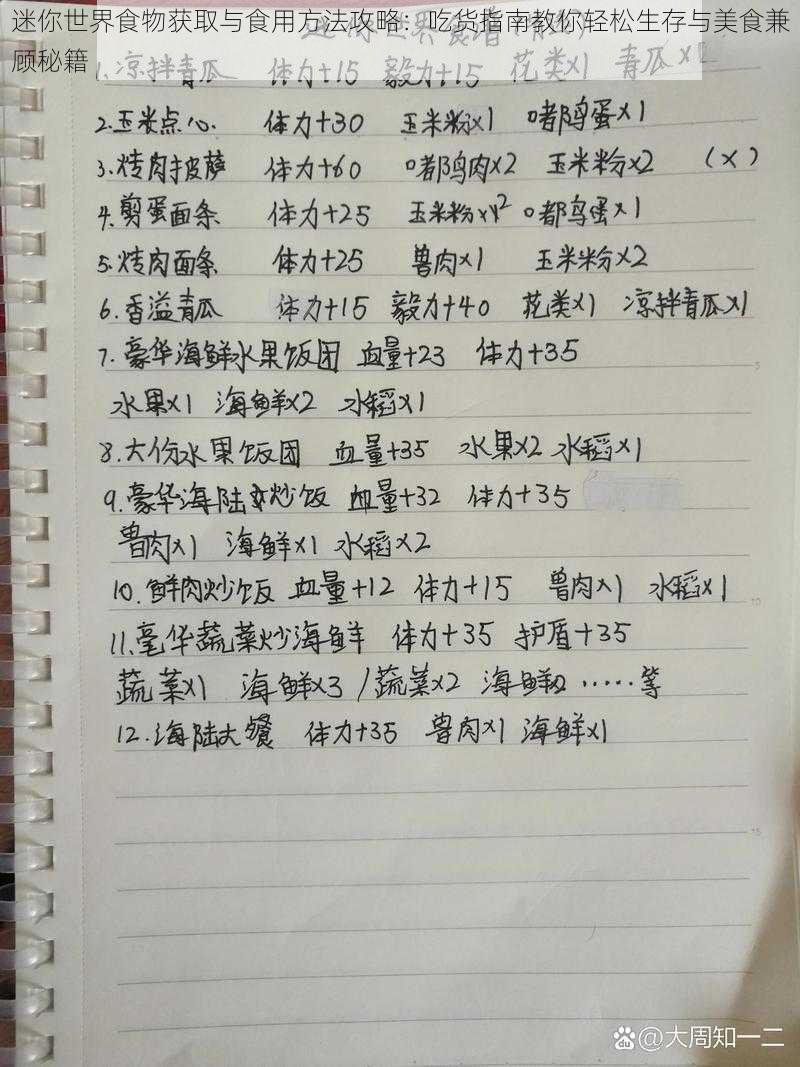 迷你世界食物获取与食用方法攻略：吃货指南教你轻松生存与美食兼
顾秘籍
1.凉拌青瓜 体力+15 毅力+15 花类x1 青瓜x
2.玉米点心 体力+30 玉米粉x1 嘟鸟蛋x1
3.烤肉披萨 体力+60 嘟鸟肉x2 玉米粉x2 (x)
4.剪蛋面条 体力+25 玉米粉x2 嘟鸟蛋x1
5.烤肉面条 体力+25 兽肉x1 玉米粉x2
6.香溢青瓜 体力+15 毅力+40 花类x1 凉拌青瓜x1
7.豪华海鲜水果饭团 血量+23 体力+35
水果x1 海鲜x2 水稻x1
8.大份水果饭团 血量+35 水果x2 水稻x1
9.豪华海陆炒饭 血量+32 体力+35
兽肉x1 海鲜x1 水稻x2
10.鲜肉炒饭 血量+12 体力+15 兽肉x1 水稻x1
11.毫华蔬菜炒海鲜 体力+35 护盾+35
蔬菜x1 海鲜x3 /蔬菜x2 海鲜 ……等
12.海陆大餐 体力+35 兽肉x1 海鲜x1
@大周知一二